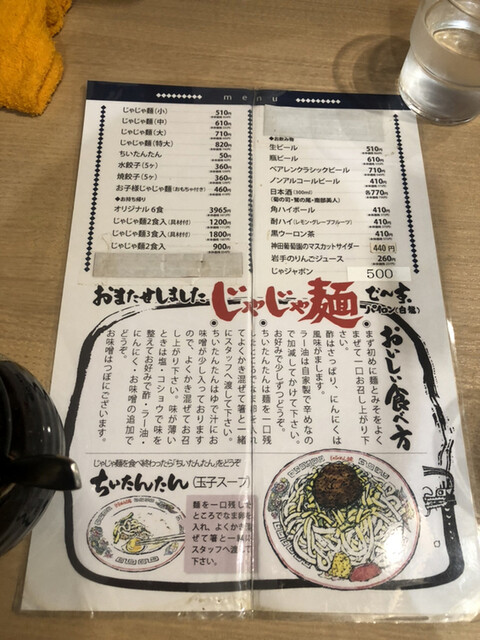 menu
じゃじゃ麺(小) 510円
じゃじゃ麺(中) 610円
じゃじゃ麺(大) 710円
じゃじゃ麺(特大) 820円
ちいたんたん 50円
水餃子(5ヶ) 360円
焼餃子(5ヶ) 360円
お子様じゃじゃ麺(おもちゃ付き) 460円
◆お持ち帰り
オリジナル6食 3965円
じゃじゃ麺2食入(具材付) 1200円
じゃじゃ麺3食入(具材付) 1800円
じゃじゃ麺2食 900円
◆お飲み物
生ビール 510円
瓶ビール 610円
ベアレンクラシックビール 710円
ノンアルコールビール 410円
日本酒(300ml) 各770円
(菊の司・鷲の尾・南部美人)
角ハイボール 410円
酎ハイ(レモン・グレープフルーツ) 410円
黒ウーロン茶 410円
神田葡萄園のマスカットサイダー 440円
岩手のりんごジュース 260円
じゃジャボン 500
おまたせしました
じゃじゃ麺
でんす
パイロン(白龍)
おいしい食べ方
まず初めに麺とみそをよく
まぜて一口お召し上がり下
さい。
酢はさっぱり、にんにくは
風味がまします。
ラー油は自家製で辛めなの
で加減してかけて下さい。
お好みで少しずつどうぞ。
ちいたんたんは麺を一口残
てよくかき混ぜて箸と一緒
にスタッフへ渡して下さい。
ちいたんたんはゆで汁にお
味噌が少し入っております
ので、よくかき混ぜてお召
し上がり下さい。味が薄い
ときは塩・コショウで味を
整えてお好みで酢・ラー油・
にんにく・お味噌の追加で
どうぞ。
お味噌はつぼにございます。
じゃじゃ麺を食べ終わったら「ちいたんたん」をどうぞ
ちいたんたん(玉子スープ)
麺を一口残した
ところでなま卵を
入れ、よくかき混
ぜて箸と一緒に
スタッフへ渡して
下さい。